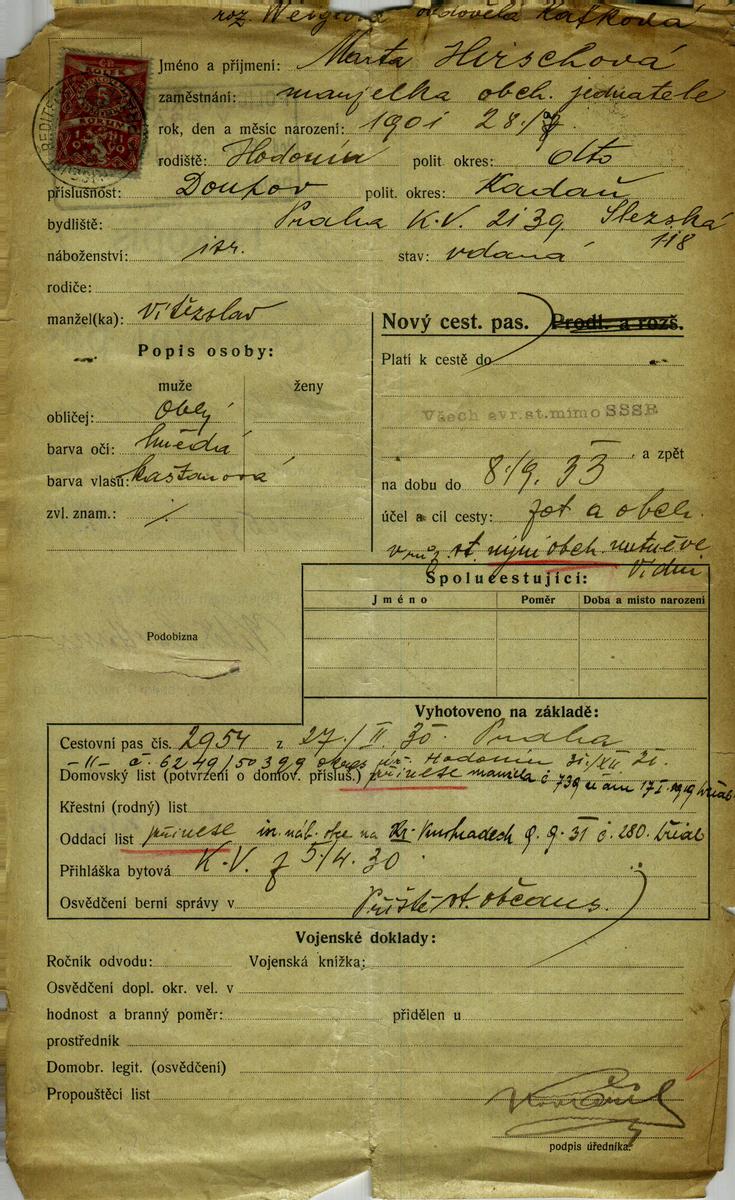 roz. ovdovělá Kafková
Jméno a příjmení: Marta Hirschová
zaměstnání: manželka obch. jednatele
rok, den a měsíc narození: 1901 28./
rodiště: Hodonín polit. okres: dto
příslušnost: Doupov polit. okres: Kadaň
bydliště: Praha K.V. 2139. Slezská 118
náboženství: isr. stav: vdaná
rodiče:
manžel(ka): Vítězslav
Nový cest. pas. Prodl. a rozš.
Popis osoby:
Platí k cestě do
muže ženy
Všech evr. st. mimo SSSR
obličej: oblý
barva očí: hnědá
, a zpět
barva vlasů: kaštanová
na dobu do 8./9. 35
zvl. znam.: /.
účel a cíl cesty: a obch.
v růz. st. nyní obch. nutně ve Vídni
Spolucestující:
Jméno Poměr Doba a místo narození
Podobizna
Vyhotoveno na základě:
Cestovní pas čís. 2954 z 27./II. 30. Praha
-11- č. 6249/50399 okres. Hodonín 31/XII 21.
Domovský list (potvrzení o domov. přísluš.) přinese manžela č 739 17 I.
Křestní (rodný) list
Oddací list přinese na Kr. Vinohradech 9. 9. 31 č. 280.
Přihláška bytová K.V. z 5/4. 30.
Osvědčení berní správy v Příště st. občans.
Vojenské doklady:
Ročník odvodu: Vojenská knížka:
Osvědčení dopl. okr. vel. v
hodnost a branný poměr: přidělen u
prostředník
Domobr. legit. (osvědčení)
Propouštěcí list
podpis úředníka.